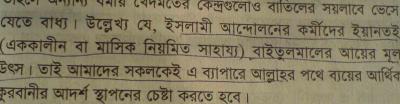 যেতে বাধ্য। উল্লেখ্য যে, ইসলামী আন্দোলনের কর্মীদের ইয়ানতই
(এককালীন বা মাসিক নিয়মিত সাহায্য) বাইতুলমালের আয়ের মূল
উৎস। তাই আমাদের সকলকেই এ ব্যাপারে আল্লাহর পথে ব্যয়ের আর্থিক
কুরবানীর আদর্শ স্থাপনের চেষ্টা করতে হবে।